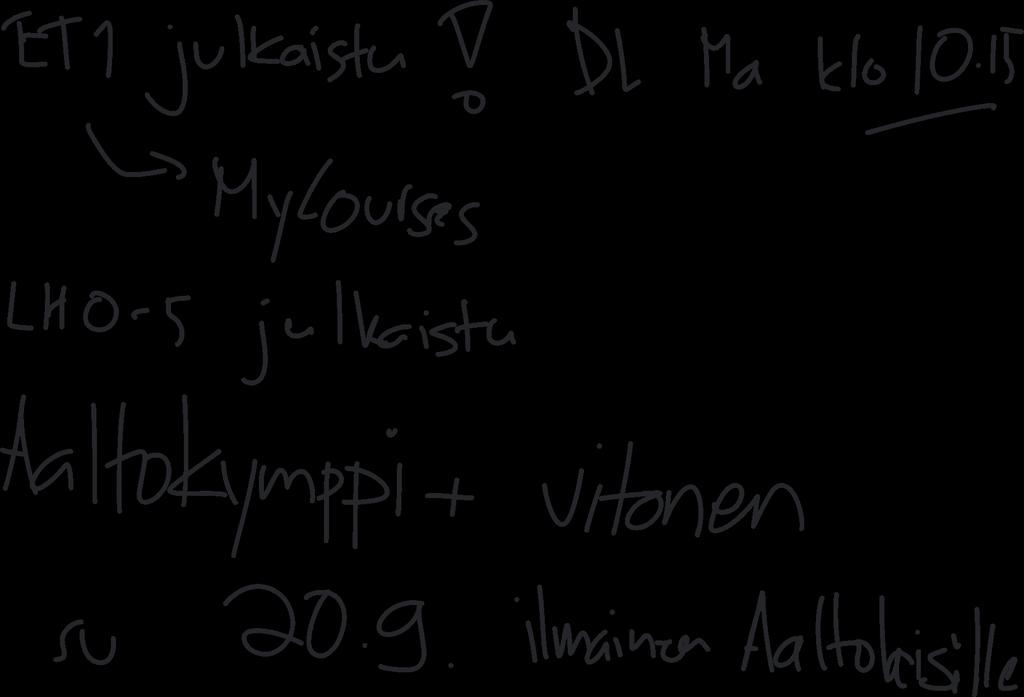 ET1 julkaistu! DL Ma klo 10.15
↳ MyCourses
LH0-5 julkaistu
Aaltokymppi + vitonen
su 20.9. ilmainen Aaltolaisille